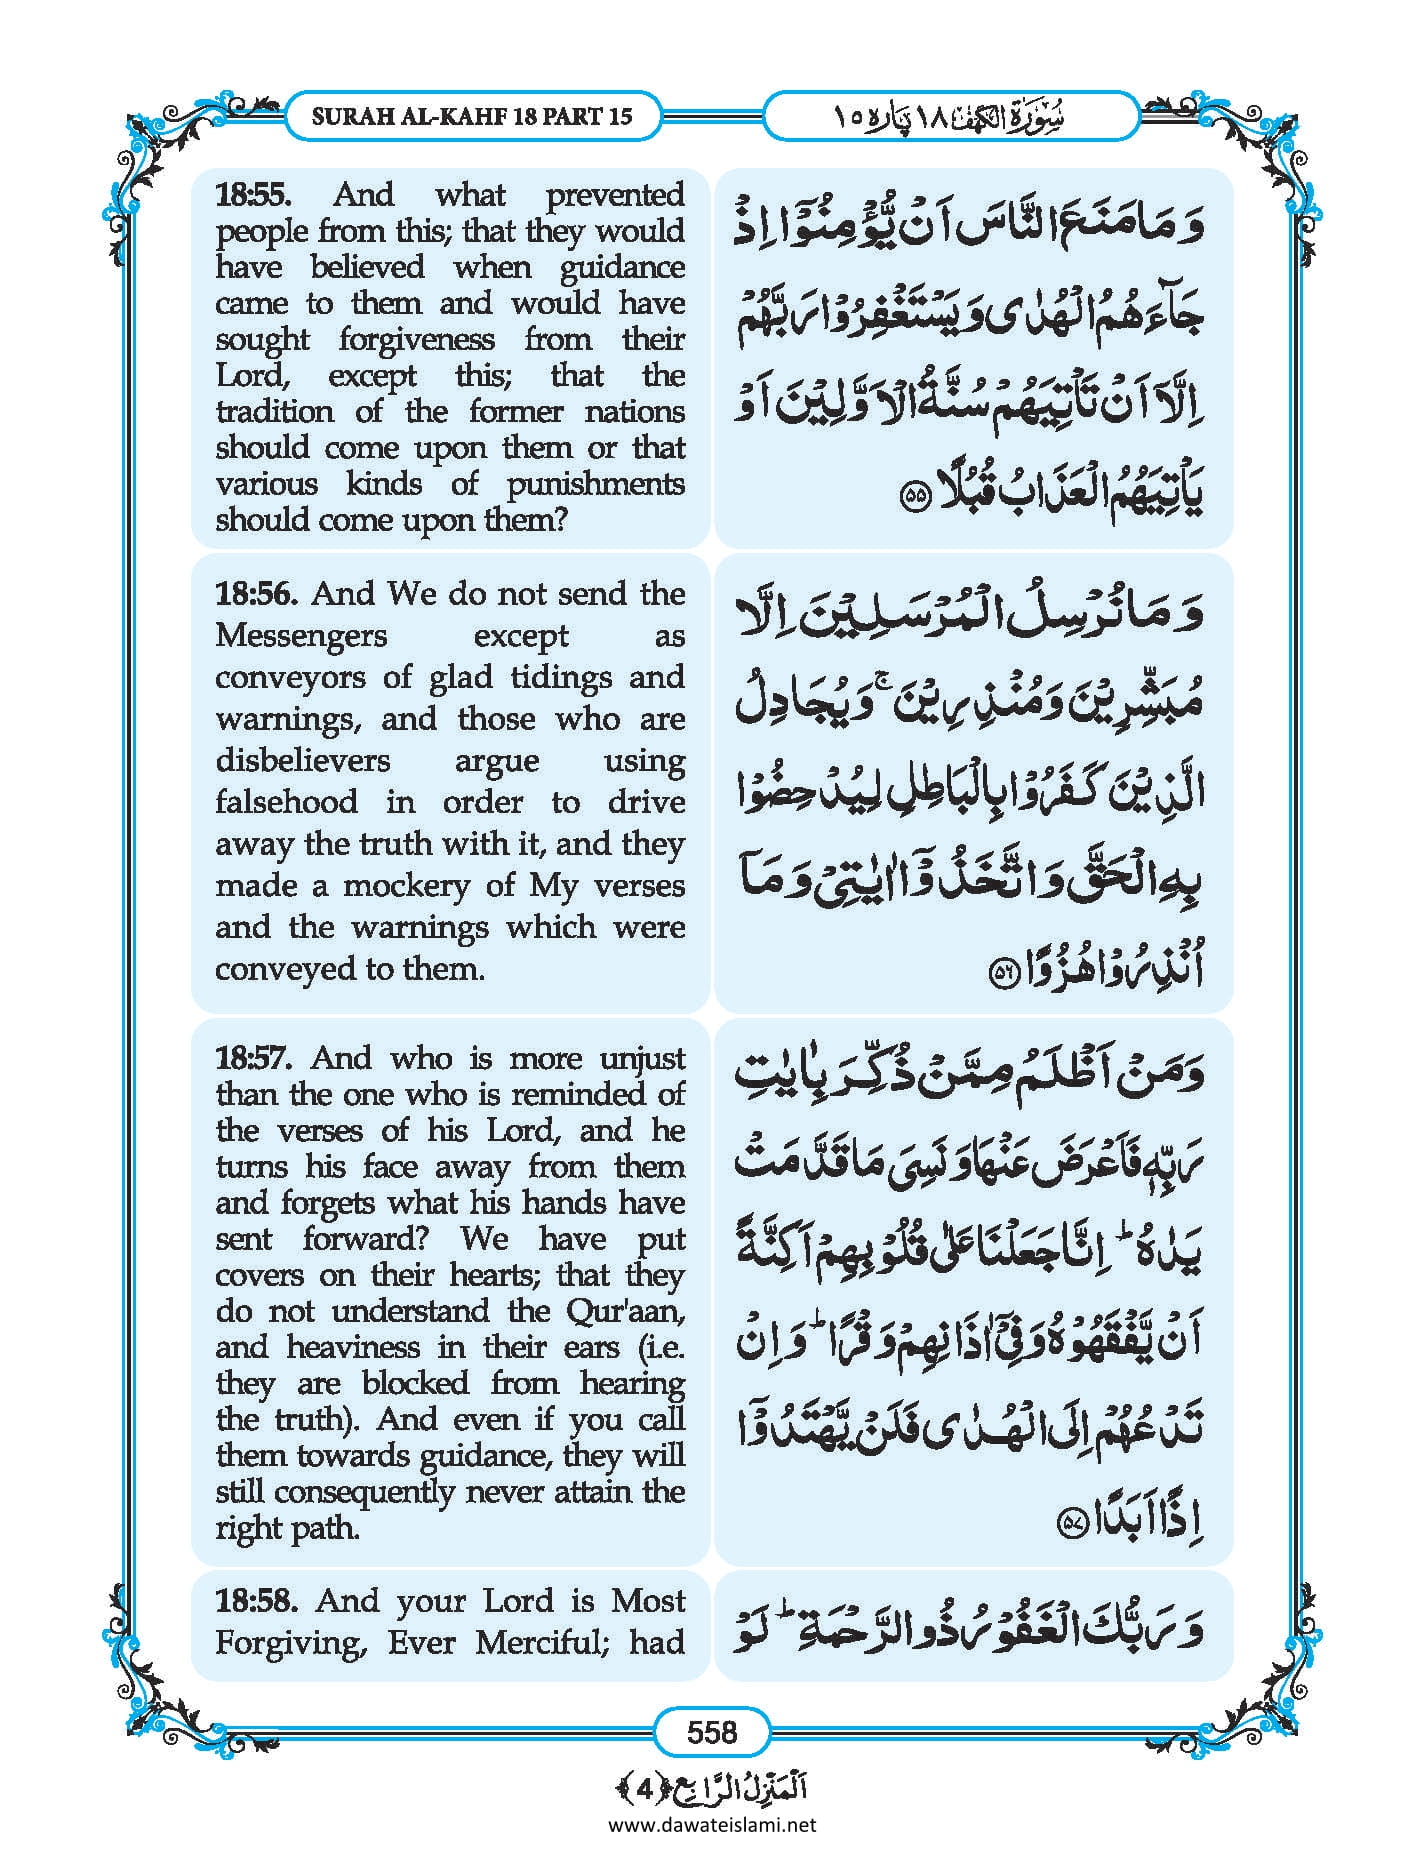 SURAH AL-KAHF 18 PART 15
سُوْرَۃُ الْکَہْف ۱۸ پارہ ۱۵
18:55. And what prevented
people from this; that they would
have believed when guidance
came to them and would have
sought forgiveness from their
Lord, except this; that the
tradition of the former nations
should come upon them or that
various kinds of punishments
should come upon them?
وَ مَا مَنَعَ النَّاسَ اَنْ یُّؤْمِنُوْۤا اِذْ
جَآءَهُمُ الْهُدٰی وَ یَسْتَغْفِرُوْا رَبَّهُمْ
اِلَّاۤ اَنْ تَاْتِیَهُمْ سُنَّةُ الْاَوَّلِیْنَ اَوْ
یَاْتِیَهُمُ الْعَذَابُ قُبُلًا ﴿۵۵﴾
18:56. And We do not send the
Messengers except as
conveyors of glad tidings and
warnings, and those who are
disbelievers argue using
falsehood in order to drive
away the truth with it, and they
made a mockery of My verses
and the warnings which were
conveyed to them.
وَ مَا نُرْسِلُ الْمُرْسَلِیْنَ اِلَّا
مُبَشِّرِیْنَ وَ مُنْذِرِیْنَ ۚ وَ یُجَادِلُ
الَّذِیْنَ كَفَرُوْا بِالْبَاطِلِ لِیُدْحِضُوْا
بِهِ الْحَقَّ وَ اتَّخَذُوْۤا اٰیٰتِیْ وَ مَاۤ
اُنْذِرُوْا هُزُوًا ﴿۵۶﴾
18:57. And who is more unjust
than the one who is reminded of
the verses of his Lord, and he
turns his face away from them
and forgets what his hands have
sent forward? We have put
covers on their hearts; that they
do not understand the Qur'aan,
and heaviness in their ears (i.e.
they are blocked from hearing
the truth). And even if you call
them towards guidance, they will
still consequently never attain the
right path.
وَ مَنْ اَظْلَمُ مِمَّنْ ذُكِّرَ بِاٰیٰتِ
رَبِّهٖ فَاَعْرَضَ عَنْهَا وَ نَسِیَ مَا قَدَّمَتْ
یَدٰهُ ؕ اِنَّا جَعَلْنَا عَلٰی قُلُوْبِهِمْ اَكِنَّةً
اَنْ یَّفْقَهُوْهُ وَ فِیْۤ اٰذَانِهِمْ وَقْرًا ؕ وَ اِنْ
تَدْعُهُمْ اِلَی الْهُدٰی فَلَنْ یَّهْتَدُوْۤا
اِذًا اَبَدًا ﴿۵۷﴾
18:58. And your Lord is Most
Forgiving, Ever Merciful; had
وَ رَبُّكَ الْغَفُوْرُ ذُو الرَّحْمَةِ ؕ لَوْ
558
اَلْمَنْزِلُ الرَّابِع ﴿4﴾
www.dawateislami.net